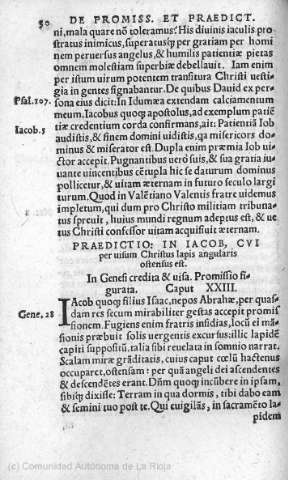 50 DE PROMISS. ET PRAEDICT.
ni, mala quare nõ toleramus? His diuinis iaculis pro
stratus inimicus, superatusq; per gratiam per homi
nem peruersus angelus, & humilis patientiæ pietas
omnem molestiam superbiæ debellauit. Iam enim
per istum uirum potentem transitura Christi uesti-
gia in gentes signabantur. De quibus Dauid ex per-
Psal. 107. sona eius dicit: In Idumæa extendam calciamentum
meum. Iacobus quoq; apostolus, ad exemplum patiẽ
Iacob. 5 tiæ credentium corda confirmans, ait: Patientiã Iob
audistis, & finem domini uidistis, qa misericors do-
minus & miserator est. Dupla enim præmia Iob ui-
ctor accepit. Pugnantibus uerò suis, & sua gratia iu-
uante uincentibus cẽtupla hic se daturum dominus
pollicetur, & uitam æternam in futuro seculo largi
turum. Quod in Valẽtiano Valentis fratre uidemus
impletum, qui dum pro Christo militiam tribuna-
tus spreuit, huius mundi regnum adeptus est, & ue-
tus Christi confessor uitam acquisiuit æternam.
PRAEDICTIO: IN IACOB, CVI
per uisum Christus lapis angularis
ostensus est.
In Genesi credita & uisa. Promissio fi-
gurata. Caput XXIII.
Gene. 28 Iacob quoq; filius Isaac, nepos Abrahæ, per quas-
dam res secum mirabiliter gestas accepit promis
sionem. Fugiens enim fratris insidias, locũ ei mã-
sionis præbuit solis uergentis excursus: illic lapidẽ
capiti supposuit. talia sibi reuelata in somnio narrat.
Scalam miræ grãditatis, cuius caput cœlũ hactenus
occuparet, ostensam: per quã angeli dei ascendentes
& descendẽtes erant. Dñm quoq; incũbere in ipsam,
sibiq; dixisse: Terram in qua dormis, tibi dabo eam
& semini tuo post te. Qui euigilãs, in sacramẽto la-
pidem
(c) Comunidad Autónoma de La Rioja